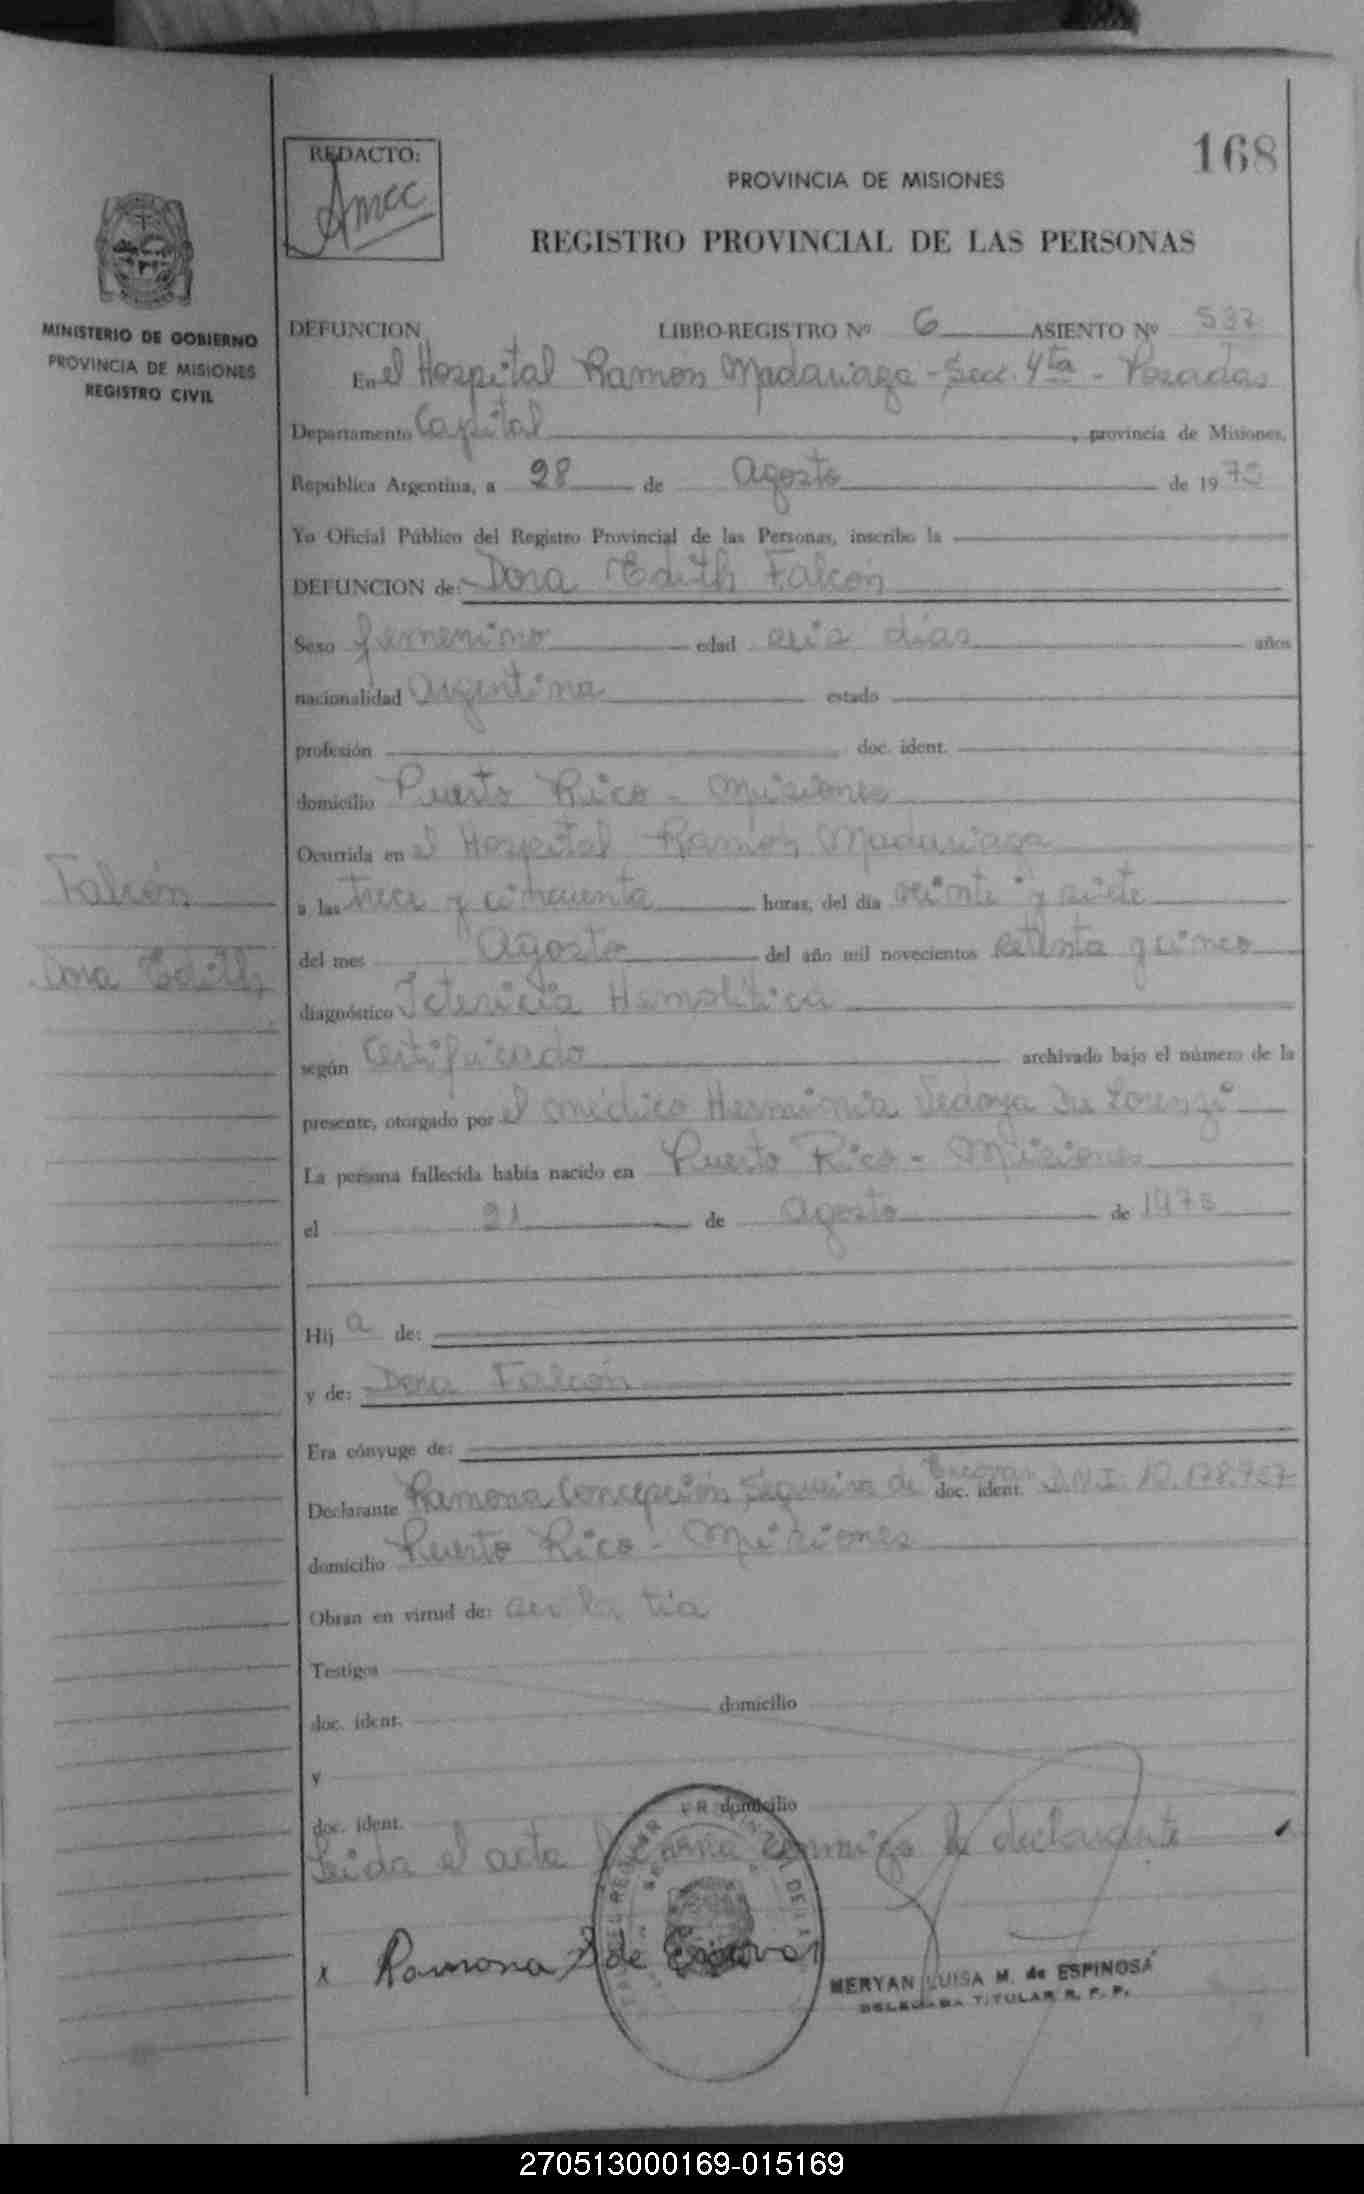 168
REDACTO:
PROVINCIA DE MISIONES
REGISTRO PROVINCIAL DE LAS PERSONAS
MINISTERIO DE GOBIERNO
PROVINCIA DE MISIONES
REGISTRO CIVIL
DEFUNCION LIBRO-REGISTRO Nº 6 ASIENTO Nº 537
En el Hospital Ramón Madariaga - Secc. 4ta - Posadas
Departamento Capital, provincia de Misiones,
República Argentina, a 28 de Agosto de 1975
Yo Oficial Público del Registro Provincial de las Personas, inscribo la
DEFUNCION de: Dora Edith Falcón
Sexo femenino edad seis días años
nacionalidad Argentina estado
profesión doc. ident.
domicilio Puerto Rico - Misiones
Ocurrida en el Hospital Ramón Madariaga
Falcón
Dora Edith
a las trece y cincuenta horas, del día veinte y siete
del mes Agosto del año mil novecientos setenta y cinco
diagnóstico Ictericia Hemolítica
según Certificado archivado bajo el número de la
presente, otorgado por el médico Herminia Vedoya De Lorenzi
La persona fallecida había nacido en Puerto Rico - Misiones
el 21 de Agosto de 1975
Hij a de:
y de: Dora Falcón
Era cónyuge de:
Declarante Ramona Concepción Sequeira de Escovar doc. ident. D.N.I.
domicilio Puerto Rico - Misiones
Obran en virtud de: ser la tía
Testigos
doc. ident. domicilio
y
doc. ident. domicilio
Leida el acta la firma conmigo la declarante
x Ramona S de Escovar
MERYAN LUISA M. de ESPINOSA
DELEGADA TITULAR R. P. P.
270513000169-015169